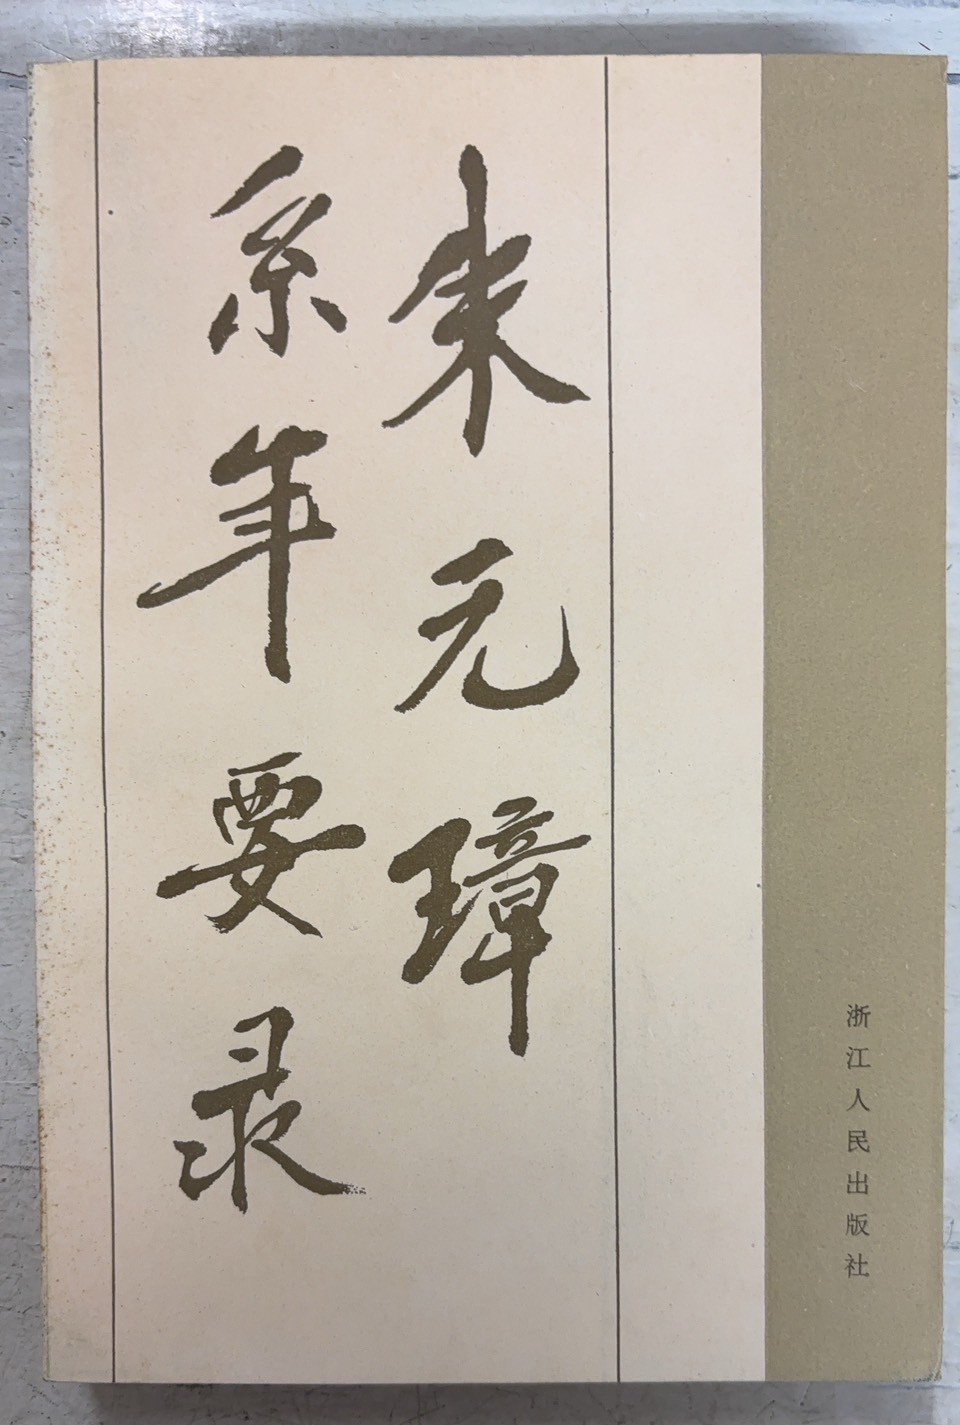 朱元璋
系年要录
浙江人民出版社